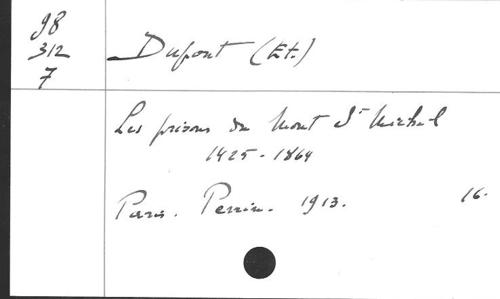 98
312
7
Dupont (Et.)
Les prisons du Mont St Michel
1425-1864
Paris. Perrin. 1913. 16.